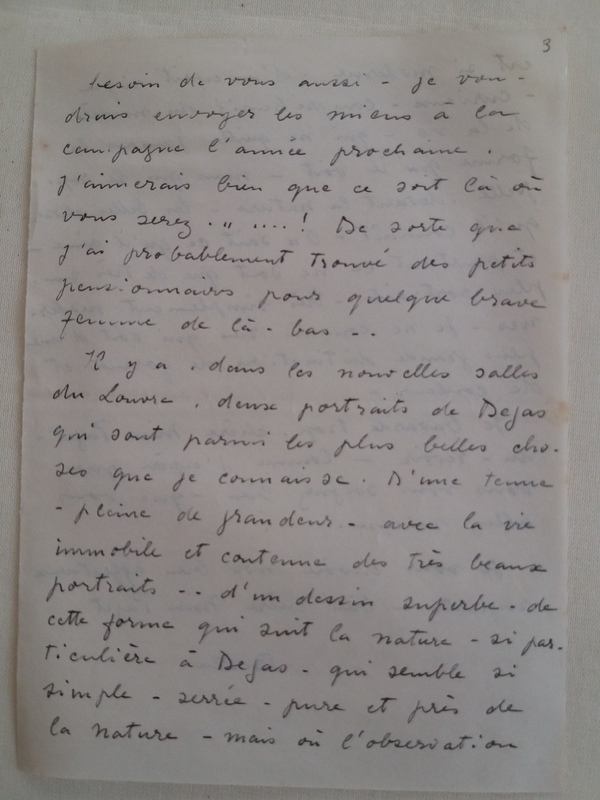 3
besoin de vous aussi - je vou-
drais envoyer les miens à la
campagne l'année prochaine.
J'aimerais bien que ce soit là où
vous serez . " ....! De sorte que
j'ai probablement trouvé des petits
pensionnaires pour quelque brave
femme de là-bas - .
Il y a . dans les nouvelles salles
du Louvre . deux portraits de Degas
qui sont parmi les plus belles cho-
ses que je connaisse. D'une tenue
- pleine de grandeur - avec la vie
immobile et contenue des très beaux
portraits - - d'un dessin superbe - de
cette forme qui suit la nature - si par-
ticulière à Degas - qui semble si
simple - serrée - pure et près de
la nature - mais où l'observation